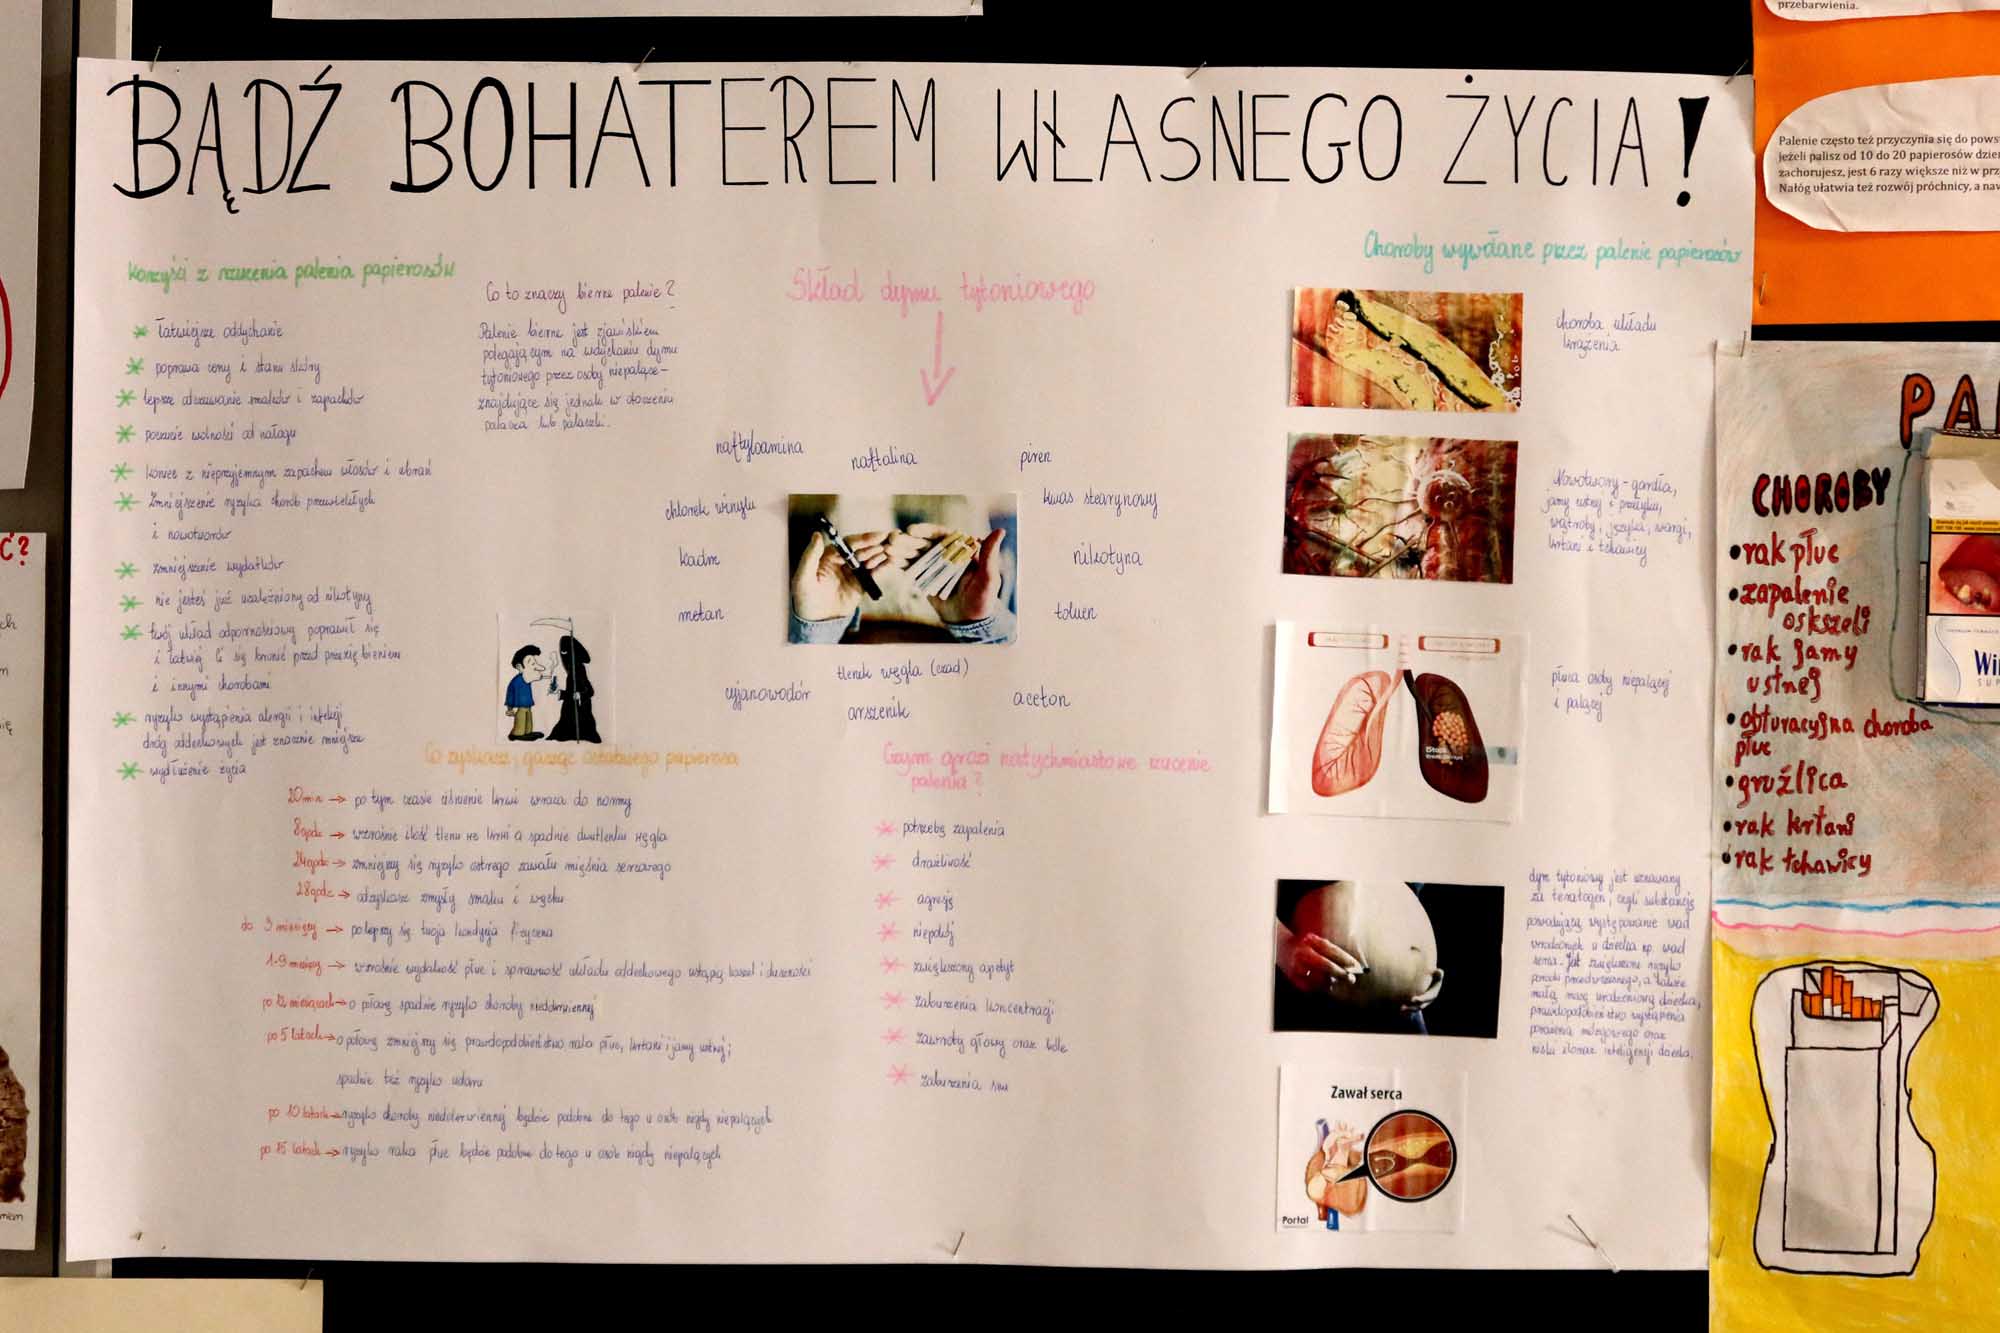 BĄDŹ BOHATEREM WŁASNEGO ŻYCIA!
Korzyści z rzucenia palenia papierosów
łatwiejsze oddychanie
poprawa cery i stanu skóry
lepsze odczuwanie smaków i zapachów
poczucie wolności od nałogu
koniec z nieprzyjemnym zapachem włosów i ubrań
zmniejszenie ryzyka chorób przewlekłych
i nowotworów
zmniejszenie wydatków
nie jesteś już uzależniony od nikotyny
twój układ odpornościowy poprawił się
i łatwiej Ci się bronić przed przeziębieniem
i innymi chorobami
ryzyko wystąpienia alergii i infekcji
dróg oddechowych jest znacznie mniejsze
wydłużenie życia
Co to znaczy bierne palenie?
Palenie bierne jest zjawiskiem
polegającym na wdychaniu dymu
tytoniowego przez osoby niepalące-
znajdujące się jednak w otoczeniu
palacza lub palaczki.
Skład dymu tytoniowego
naftyloamina
naftalina
piren
chlorek winylu
kwas stearynowy
kadm
nikotyna
metan
toluen
tlenek węgla (czad)
cyjanowodór
arszenik
aceton
Co zyskasz, gasząc ostatniego papierosa
20 min → po tym czasie ciśnienie krwi wraca do normy
8 godz → wzrośnie ilość tlenu we krwi a spadnie dwutlenku węgla
24 godz → zmniejszy się ryzyko ostrego zawału mięśnia sercowego
28 godz → odzyskasz zmysły smaku i węchu
do 3 miesięcy → polepszy się twoja kondycja fizyczna
1-9 miesięcy → wzrośnie wydolność płuc i sprawność układu oddechowego ustąpią kaszel i duszności
po 12 miesiącach → o połowę spadnie ryzyko choroby niedokrwiennej
po 5 latach → o połowę zmniejszy się prawdopodobieństwo raka płuc, krtani i jamy ustnej;
spadnie też ryzyko udaru
po 10 latach → ryzyko choroby niedokrwiennej będzie podobne do tego u osób nigdy niepalących
po 15 latach → ryzyko raka płuc będzie podobne do tego u osób nigdy niepalących
Czym grozi natychmiastowe rzucenie
palenia?
potrzebę zapalenia
drażliwość
agresję
niepokój
zwiększony apetyt
zaburzenia koncentracji
zawroty głowy oraz bóle
zaburzenia snu
Choroby wywołane przez palenie papierosów
choroba układu
krążenia
Nowotwory - gardła,
jamy ustnej i przełyku,
wątroby, języka, wargi,
krtani i tchawicy
płuca osoby niepalącej
i palącej
dym tytoniowy jest uznawany
za teratogen, czyli substancję
powodującą występowanie wad
wrodzonych u dziecka np. wad
serca. Jest zwiększone ryzyko
porodu przedwczesnego, a także
małą masę urodzeniową dziecka,
prawdopodobieństwo wystąpienia
porażenia mózgowego oraz
niski iloraz inteligencji dziecka.
Zawał serca
Portal
przebarwienia.
Palenie często też przyczynia się do pows
jeżeli palisz od 10 do 20 papierosów dzien
zachorujesz, jest 6 razy większe niż w prz
Nałóg ułatwia też rozwój próchnicy, a naw
PA
CHOROBY
rak płuc
zapalenie
oskszeli
rak jamy
ustnej
obturacyjna choroba
płuc
gruźlica
rak krtani
rak tchawicy
Ć?